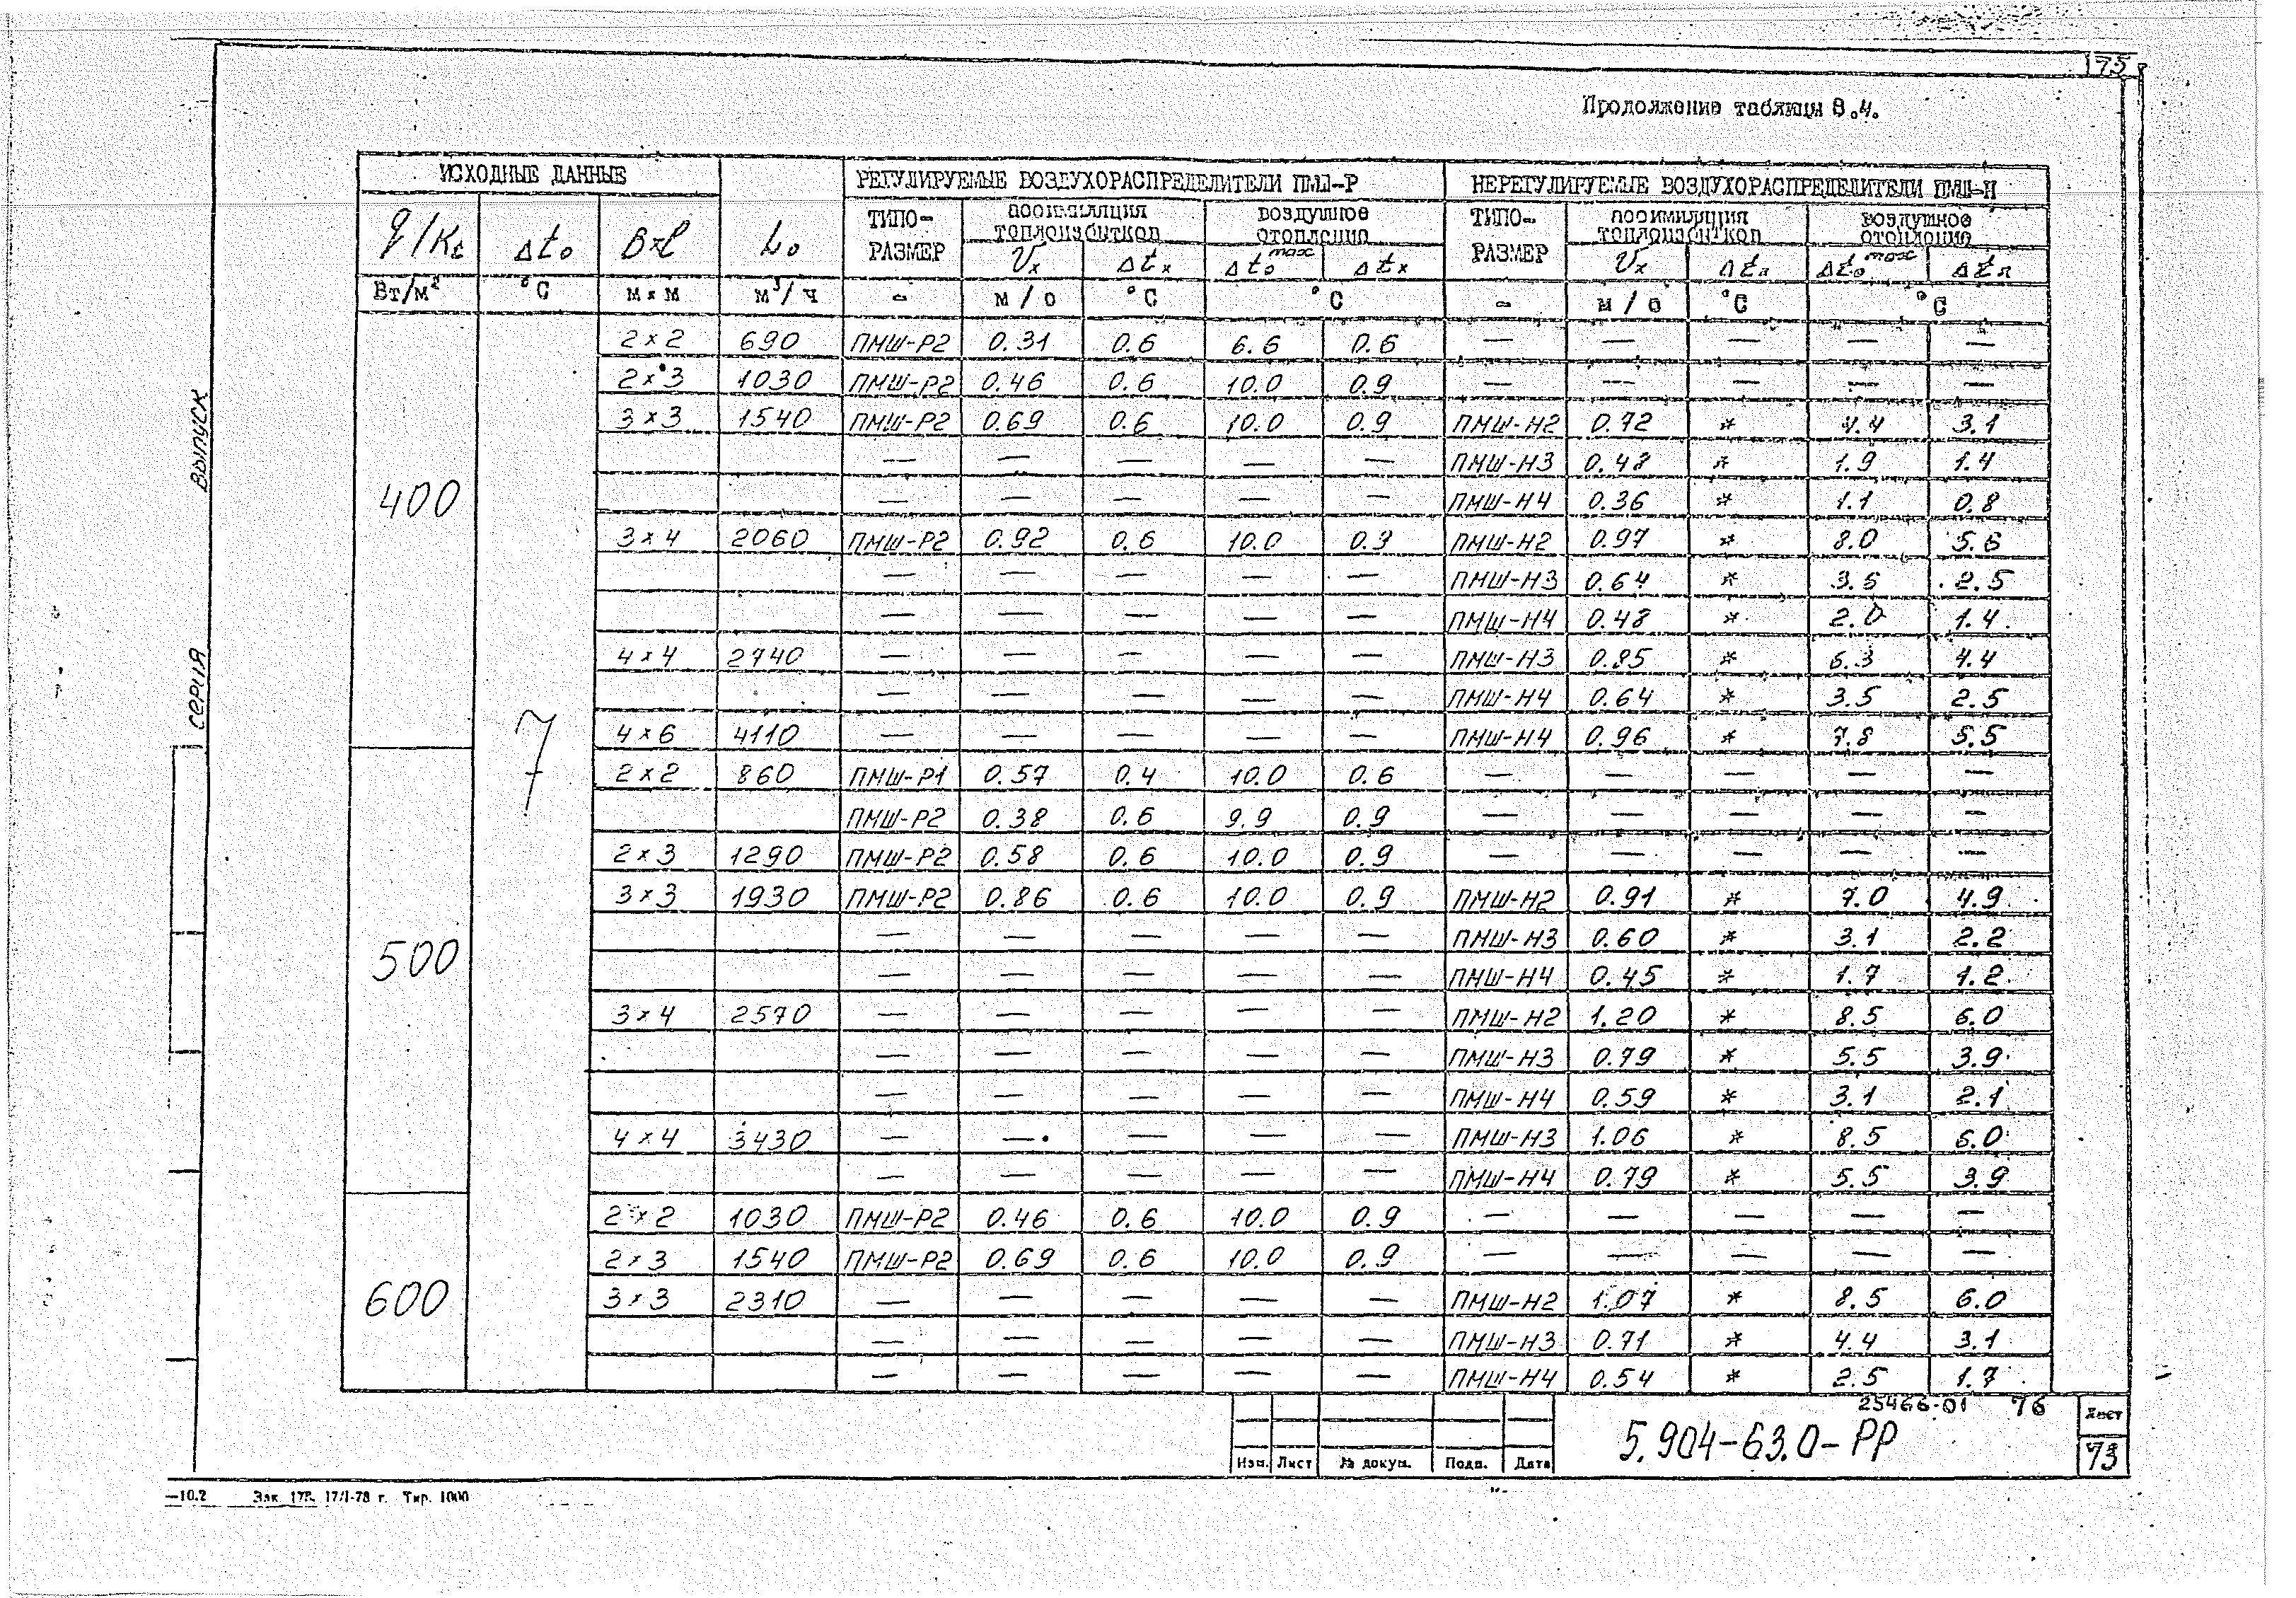 175
Продолжение таблицы 8.4.
ИСХОДНЫЕ ДАННЫЕ
РЕГУЛИРУЕМЫЕ ВОЗДУХОРАСПРЕДЕЛИТЕЛИ ПМШ-Р
НЕРЕГУЛИРУЕМЫЕ ВОЗДУХОРАСПРЕДЕЛИТЕЛИ ПМШ-Н
q/Kt Δto B×l Lo ТИПО-РАЗМЕР ассимиляция теплоизбытков воздушное отопление ТИПО-РАЗМЕР ассимиляция теплоизбытков воздушное отопление
Vx Δtx Δto max Δtx Vx Δtx Δto max Δtx
Вт/м² °C м×м м³/ч – м/с °C °C – м/с °C °C
400 7
2×2 690 ПМШ-Р2 0.31 0.6 6.6 0.6 — — — — —
2×3 1030 ПМШ-Р2 0.46 0.6 10.0 0.9 — — — — —
3×3 1540 ПМШ-Р2 0.69 0.6 10.0 0.9 ПМШ-Н2 0.72 * 4.4 3.1
— — — — — ПМШ-Н3 0.48 * 1.9 1.4
— — — — — ПМШ-Н4 0.36 * 1.1 0.8
3×4 2060 ПМШ-Р2 0.92 0.6 10.0 0.9 ПМШ-Н2 0.97 * 8.0 5.6
— — — — — ПМШ-Н3 0.64 * 3.5 2.5
— — — — — ПМШ-Н4 0.48 * 2.0 1.4
4×4 2740 — — — — — ПМШ-Н3 0.85 * 6.3 4.4
— — — — — ПМШ-Н4 0.64 * 3.5 2.5
4×6 4110 — — — — — ПМШ-Н4 0.96 * 7.8 5.5
500
2×2 860 ПМШ-Р1 0.57 0.4 10.0 0.6 — — — — —
ПМШ-Р2 0.38 0.6 9.9 0.9 — — — — —
2×3 1290 ПМШ-Р2 0.58 0.6 10.0 0.9 — — — — —
3×3 1930 ПМШ-Р2 0.86 0.6 10.0 0.9 ПМШ-Н2 0.91 * 7.0 4.9
— — — — — ПМШ-Н3 0.60 * 3.1 2.2
— — — — — ПМШ-Н4 0.45 * 1.7 1.2
3×4 2570 — — — — — ПМШ-Н2 1.20 * 8.5 6.0
— — — — — ПМШ-Н3 0.79 * 5.5 3.9
— — — — — ПМШ-Н4 0.59 * 3.1 2.1
4×4 3430 — — — — — ПМШ-Н3 1.06 * 8.5 6.0
— — — — — ПМШ-Н4 0.79 * 5.5 3.9
600
2×2 1030 ПМШ-Р2 0.46 0.6 10.0 0.9 — — — — —
2×3 1540 ПМШ-Р2 0.69 0.6 10.0 0.9 — — — — —
3×3 2310 — — — — — ПМШ-Н2 1.07 * 8.5 6.0
— — — — — ПМШ-Н3 0.71 * 4.4 3.1
— — — — — ПМШ-Н4 0.54 * 2.5 1.7
серия выпуск
25466-01 76
Изм. Лист № докум. Подп. Дата
5.904-63.0-РР
Лист
73
—10.2 Зак. 178. 17/I-78 г. Тир. 1000